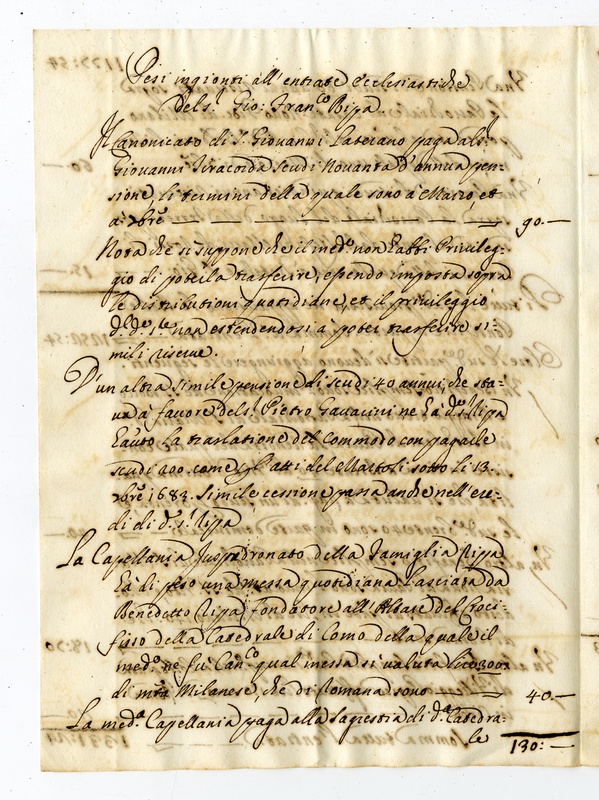 Pesi ingionti all'entrate Ecclesiastiche
del s.r Gio: Fran.co Ripa.
Il Canonicato di S. Giovanni Laterano paga al s.r
Giovanni scudi Novanta d'annua pen-
sione, li termini della quale sono à Marzo, et
à 7bre — — — — — 90.—
Nota che si suppone che il med.o non habbi Privileg-
gio di poterla trasferire, essendo imposta sopra
le distributioni quotidiane, et il privileggio
d.o non estendendosi à poter trasferire si-
mili riserve.
D'un altra simile pensione di scudi 40 annui, che sta-
va à favore del s.r Pietro Gavarini ne hà d.o s.r Ripa
hauto la traslatione del commodo con pagarle
scudi 200. come gl'atti del Martoli sotto li 13.
xbre 1683. simile cessione passa anche nell'ere-
di di d.o s.r Ripa
La Capellania Juspadronato della famiglia Ripa
hà di peso una messa quotidiana lasciata da
Benedetto Ripa fondatore all'Altare del Croci-
fisso della Catedrale di Como della quale il
med.o ne fù Can.co qual messa si valuta lire 300.
di m.ta Milanese, che di Romana sono — 40.—
La med.a Capellania paga alla sagrestia di d.a Catedra-
le
130:—